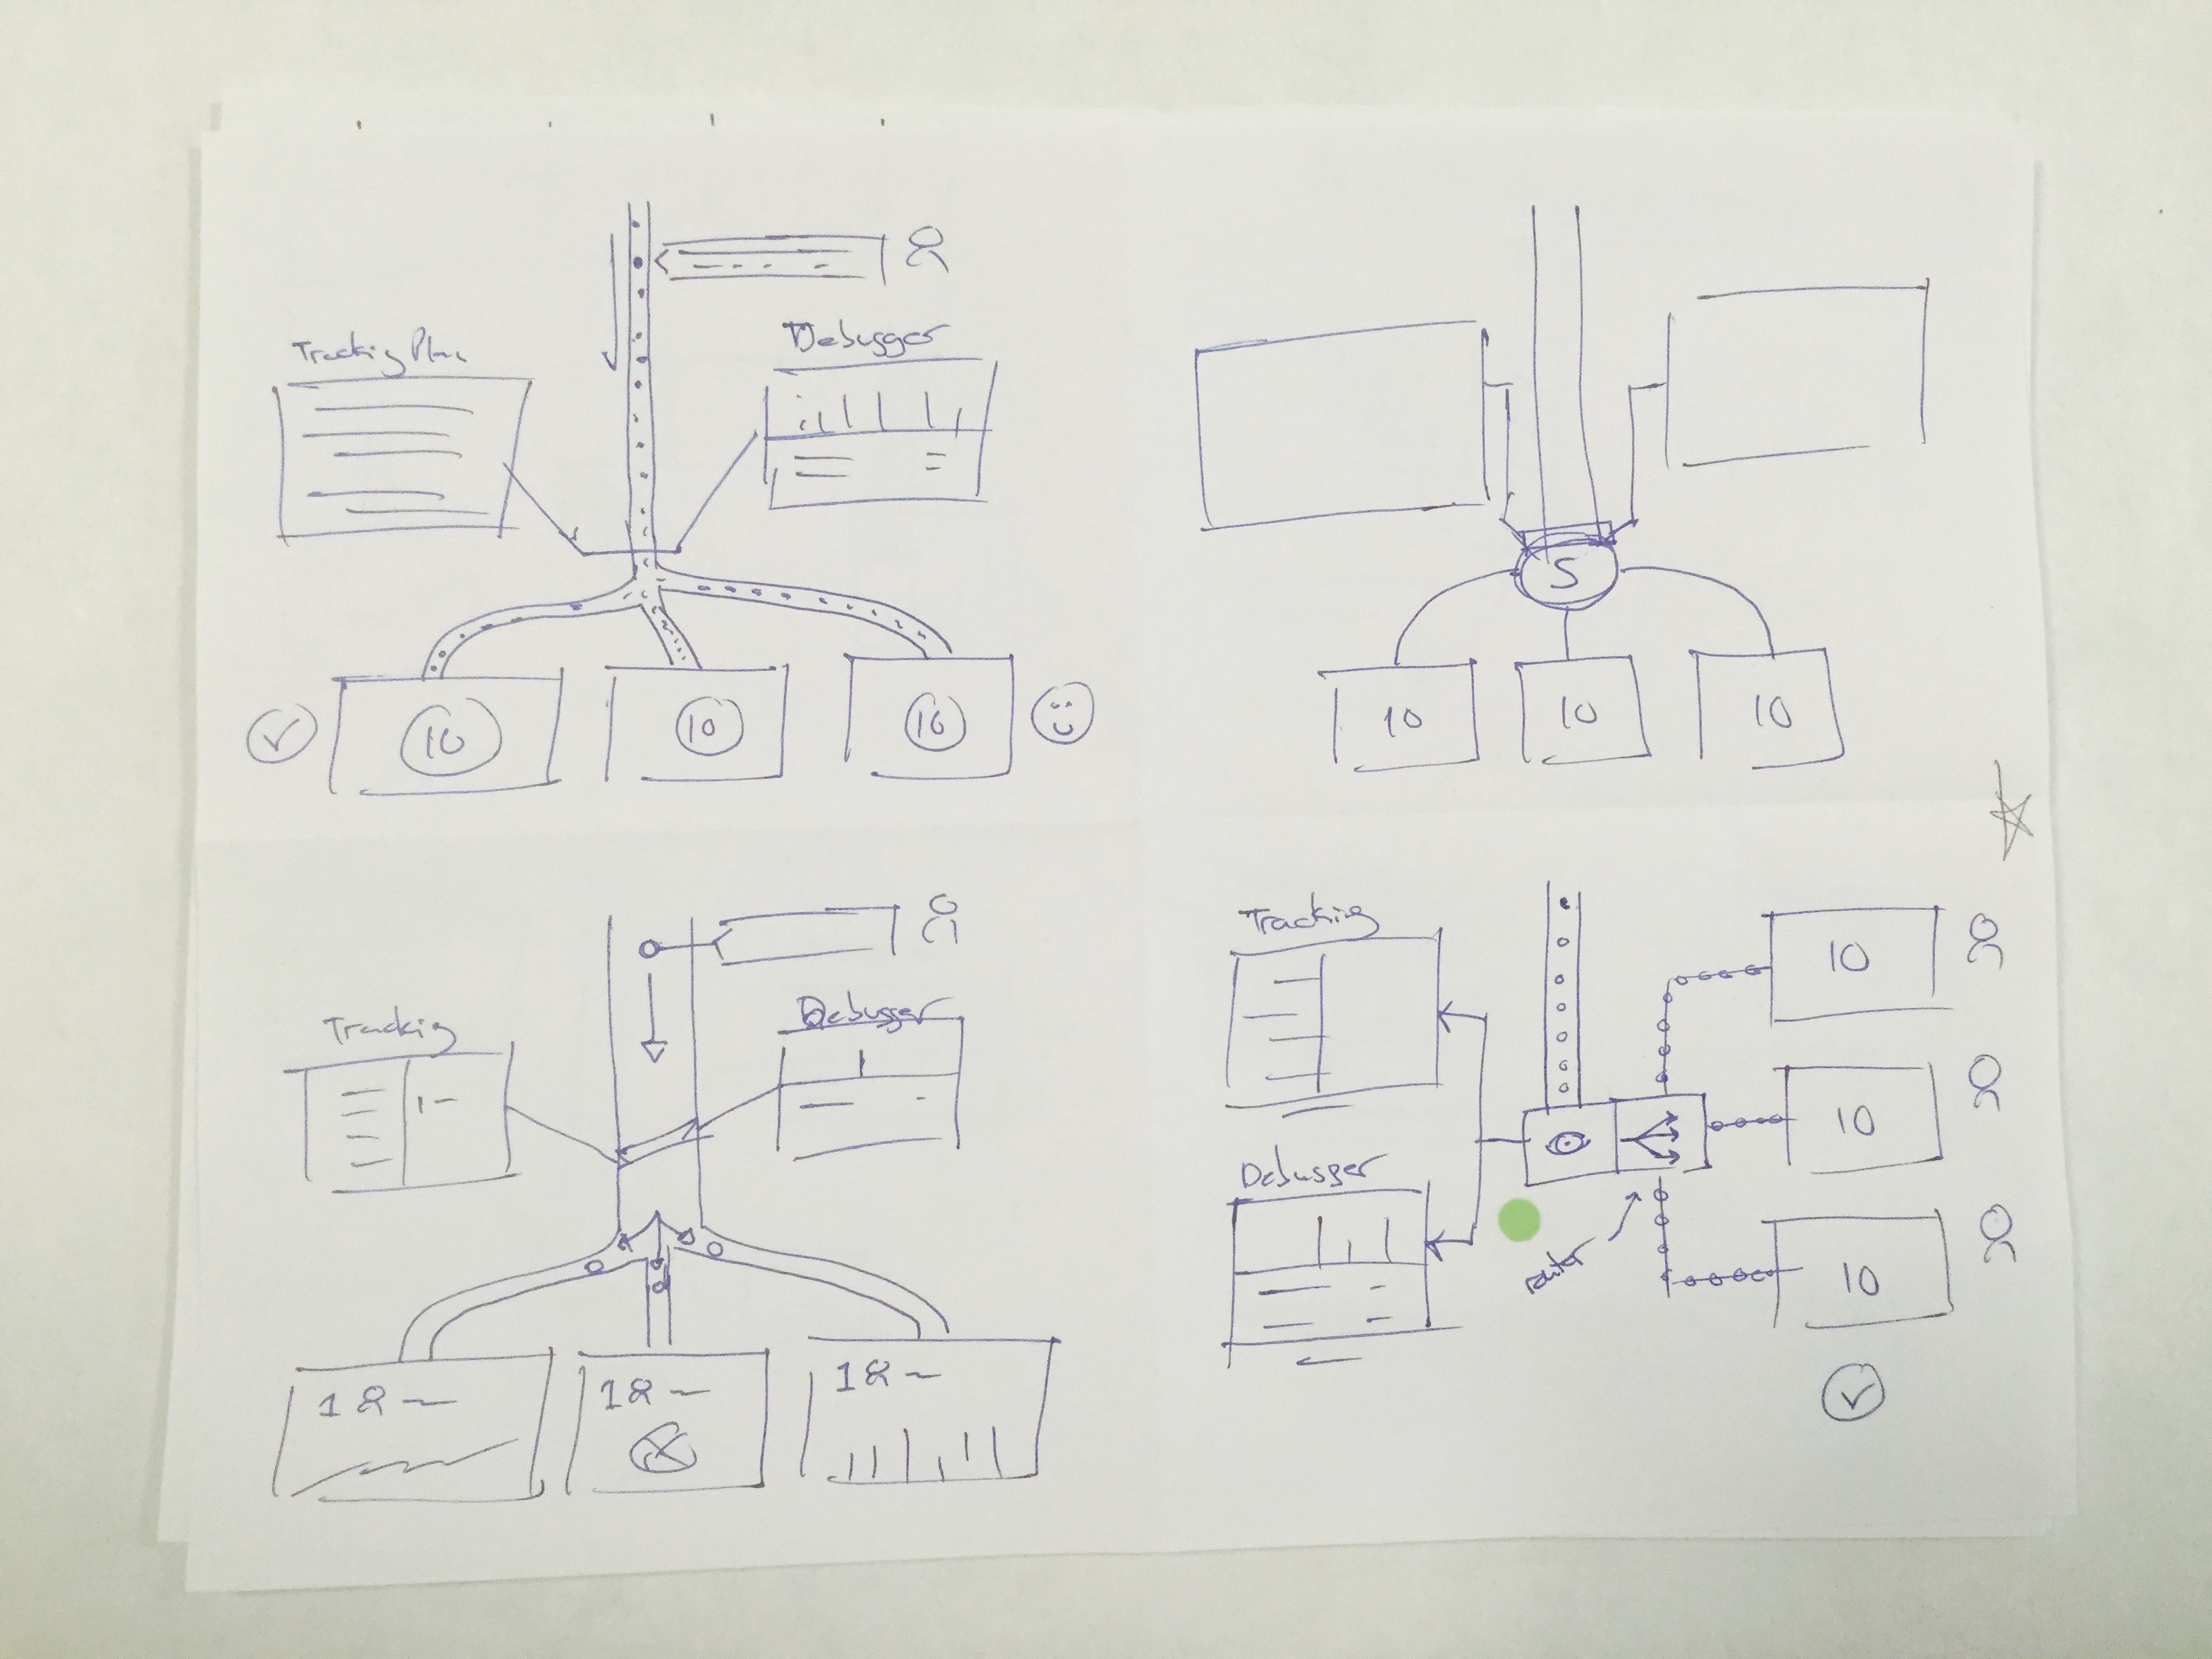 Tracking Plan
Debugger
10
10
10
S
10
10
10
Tracking
Debugger
1
1
1
Tracking
Debugger
router
10
10
10